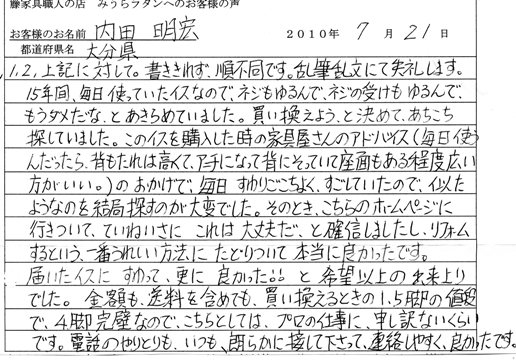 籐家具職人の店 みうらラタンへのお客様の声
お客様のお名前 内田 明宏 2010年 7月 21日
都道府県名 大分県
1.2,上記に対して。書ききれず、順不同です。乱筆乱文にて失礼します。
15年間、毎日使っていたイスなので、ネジもゆるんで、ネジの受けもゆるんで、
もうダメだな、とあきらめていました。買い換えよう、と決めて、あちこち
探していました。このイスを購入した時の家具屋さんのアドバイス(毎日使う
んだったら、背もたれは高くて、アーチになって背にそっていて座面もある程度広い
方がいい。)のおかげで、毎日すわりごこちよく、すごしていたので、似た
ようなのを結局探すのが大変でした。そのとき、こちらのホームページに
行きついて、ていねいさに これは大丈夫だ、と確信しましたし、リフォーム
するという、一番うれしい方法に たどりついて 本当に良かったです。
届いたイスに すわって、更に 良かった!! と 希望以上の出来上り
でした。 金額も、送料を含めても、買い換えるときの1.5脚の値段
で、4脚完璧なので、こちらとしては、プロの仕事に、申し訳ないくらい
です。電話のやりとりも、いつも、朗らかに接して下さって、連絡しやすく、良かったです。